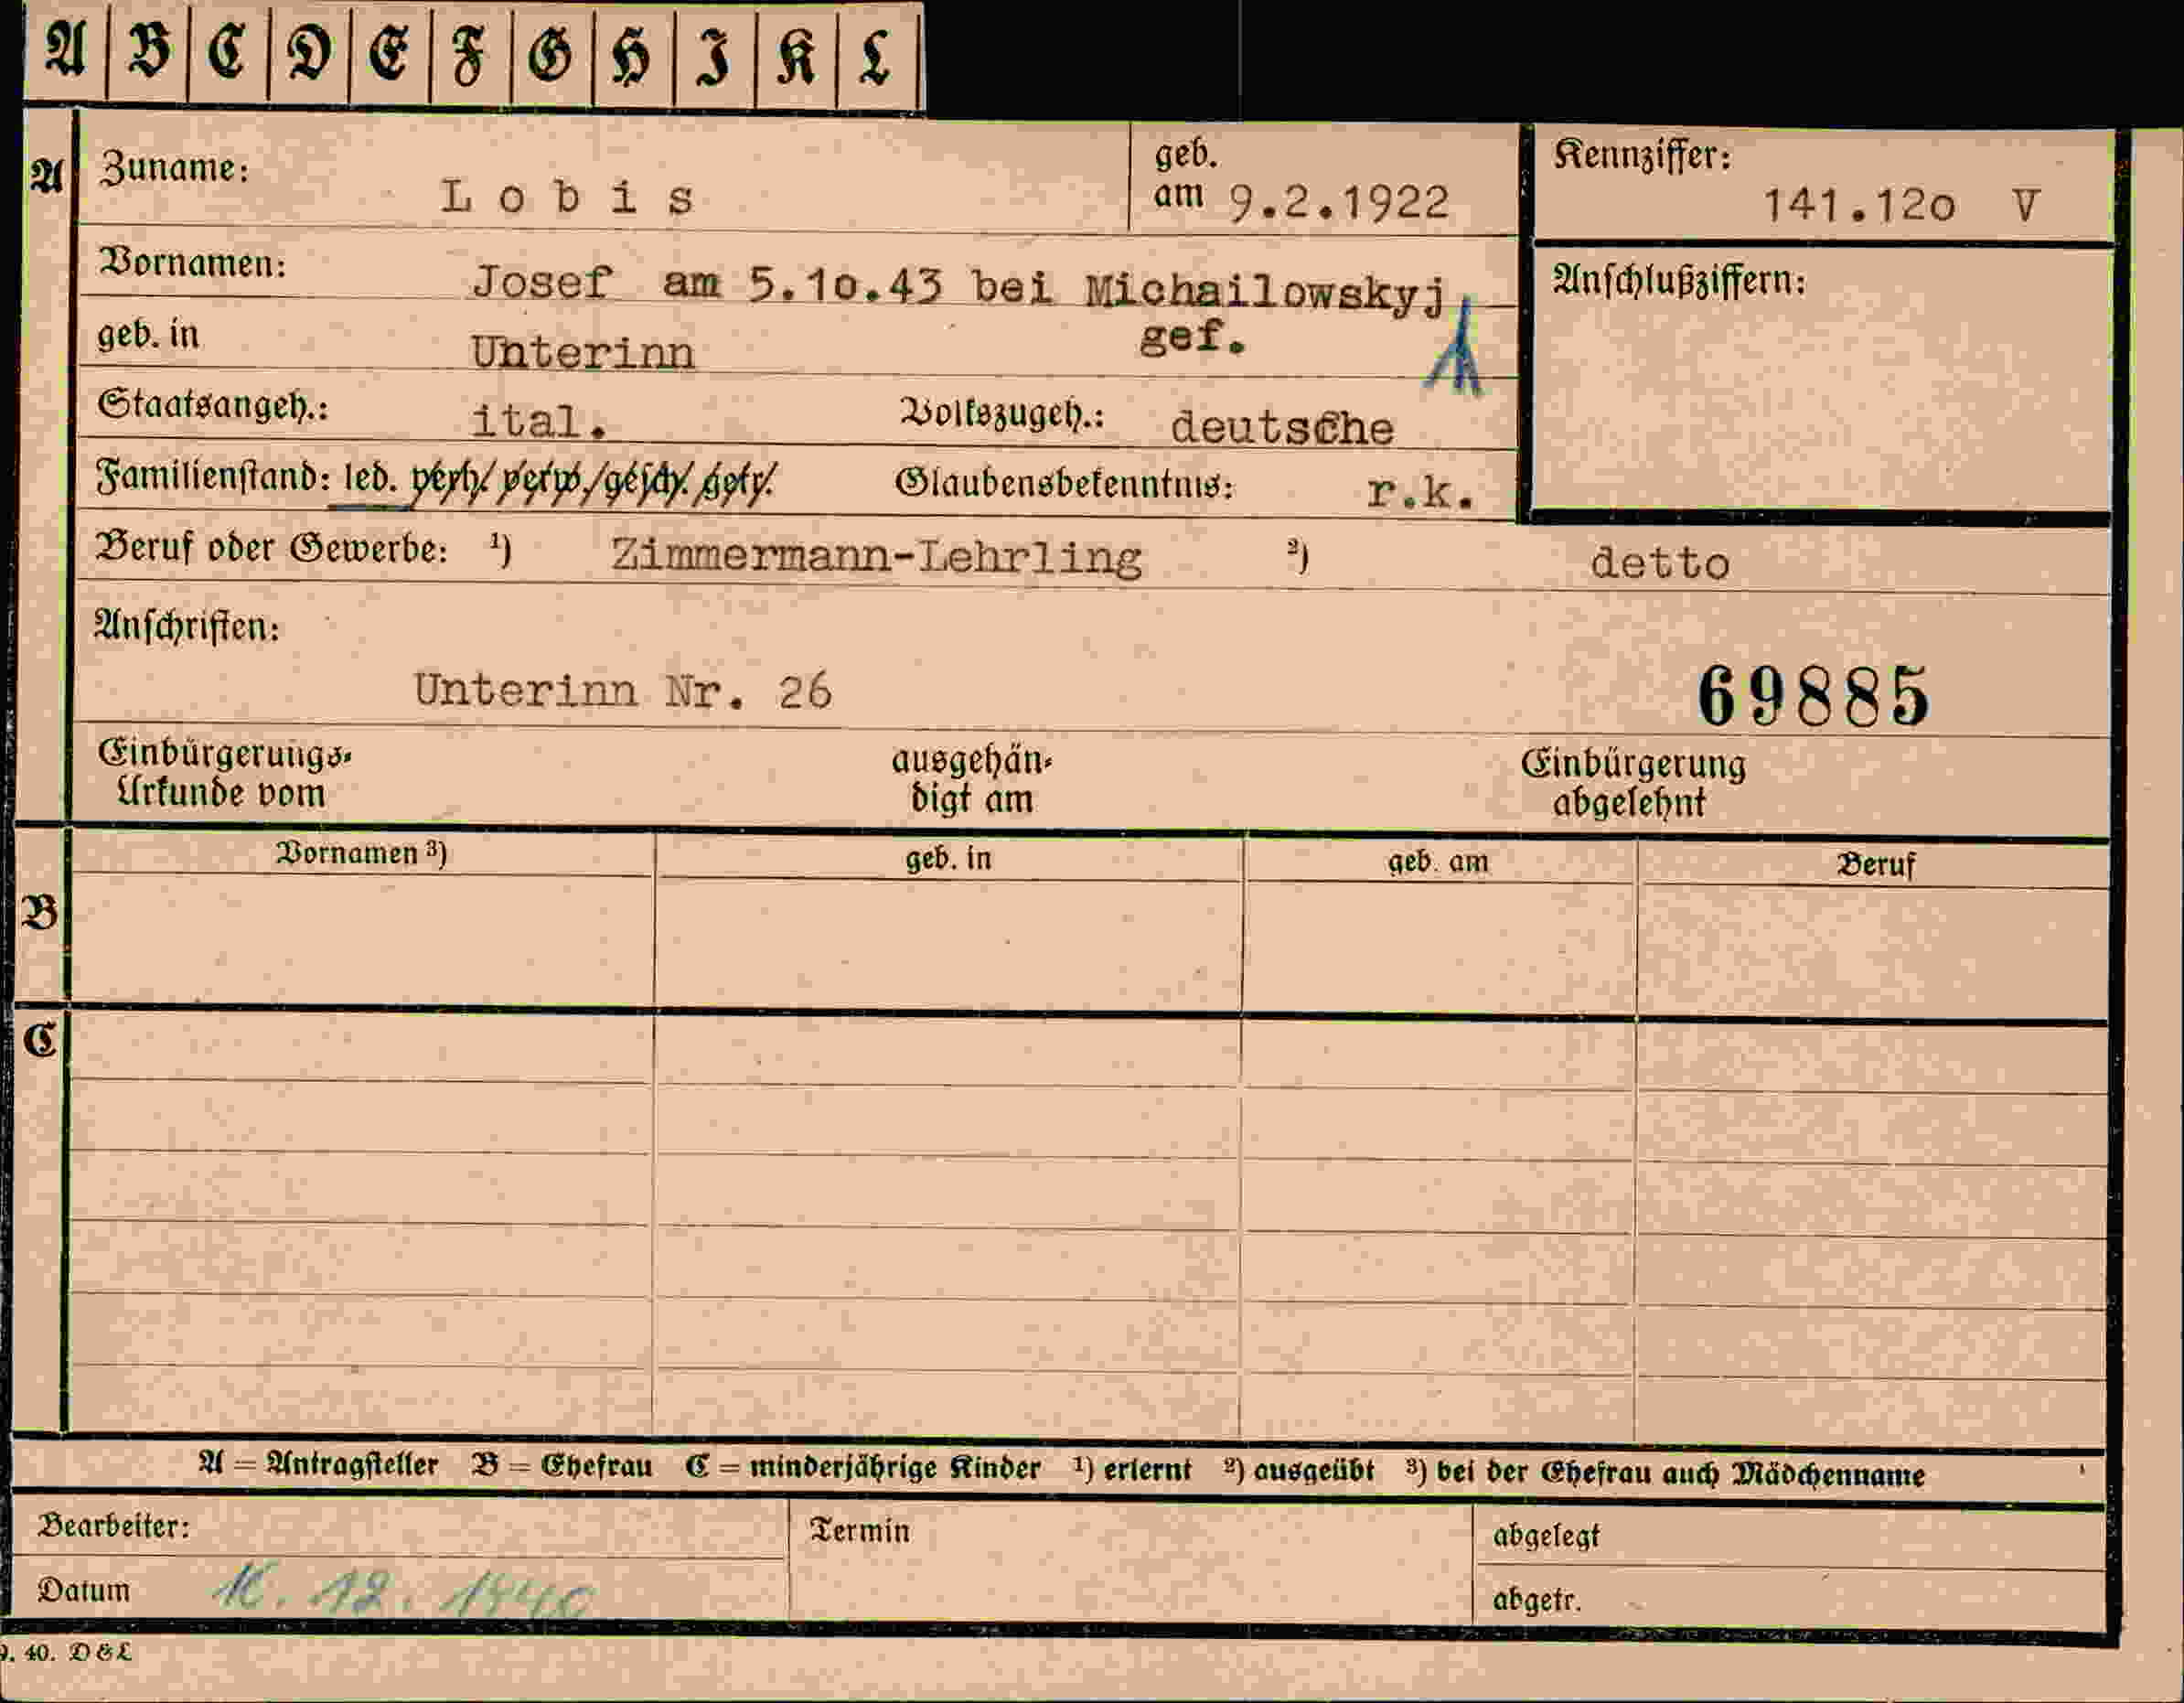 A B C D E F G H I K L
A Zuname: Lobis geb. am 9.2.1922 Kennziffer: 141.12o V
Vornamen: Josef am 5.1o.43 bei Michailowskyj gef. Anschlußziffern:
geb. in Unterinn
Staatsangeh.: ital. Volkszugeh.: deutsche
Familienstand: led. verh./verw./gesch. getr. Glaubensbekenntnis: r.k.
Beruf oder Gewerbe: ¹) Zimmermann-Lehrling ²) detto
Anschriften:
Unterinn Nr. 26 69885
Einbürgerungs- ausgehän- Einbürgerung
Urkunde vom digt am abgelehnt
B Vornamen ³) geb. in geb. am Beruf
C
A = Antragsteller B = Ehefrau C = minderjährige Kinder ¹) erlernt ²) ausgeübt ³) bei der Ehefrau auch Mädchenname
Bearbeiter: Termin abgelegt
Datum 16. 12. 1940 abgetr.
9. 40. D&L